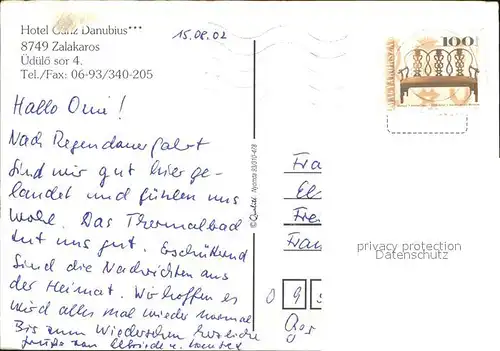 Hotel Ganz Danubius***
8749 Zalakaros
Üdülő sor 4.
Tel./Fax: 06-93/340-205
15.08.02
100
Hallo Omi!
Nach Regendauerfahrt
sind wir gut hier ge-
landet und fühlen uns
wohl. Das Thermalbad
tut uns gut. Erschütternd
sind die Nachrichten aus
der Heimat. Wir hoffen es
wird alles mal wieder normal
Bis zum Wiedersehen herzliche
Grüße von
Fra
El
Fre
Fran
0 9 5
privacy protection
Datenschutz